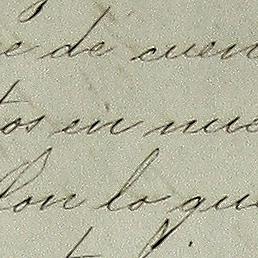 e de cuen
tos en nue
Con lo que